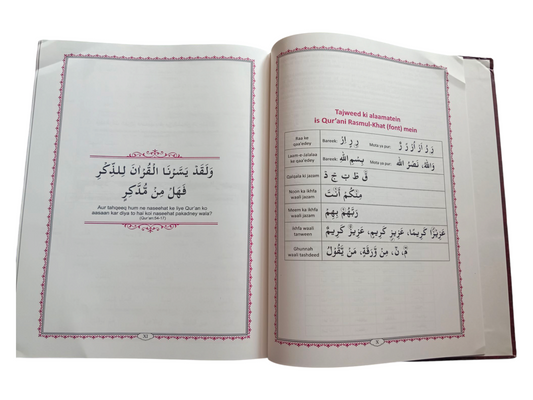 وَلَقَدْ يَسَّرْنَا الْقُرْاٰنَ لِلذِّكْرِ
فَهَلْ مِنْ مُّدَّكِرٍ
Aur tahqeeq hum ne naseehat ke liye Qur'an ko
aasaan kar diya to hai koi naseehat pakadney wala?
(Qur'an 54-17)
XI
Tajweed ki alaamatein
is Qur'ani Rasmul-Khat (font) mein
Raa ke
qaa'edey
Bareek:
Mota ya pur:
Laam-e-Jalalaa
ke qaa'edey
Bareek: بِسْمِ اللهِ
Mota ya pur: وَاللهُ، نَصْرُ اللهِ
Qalqala ki jazam
قْ طْ بْ جْ دْ
Noon ka Ikhfa
waali jazam
مِنْكُمْ أَنْتَ
Meem ka Ikhfa
waali jazam
رَبَّهُمْ بِهِمْ
Ikhfa waali
tanween
عَزِيْزًا كَرِيْمًا، عَزِيْزٍ كَرِيْمٍ، عَزِيْزٌ كَرِيْمٌ
Ghunnah
waali tashdeed
مّ، نّ، مِنْ وَّرَقَةٍ، مَنْ يَّقُوْلُ
X